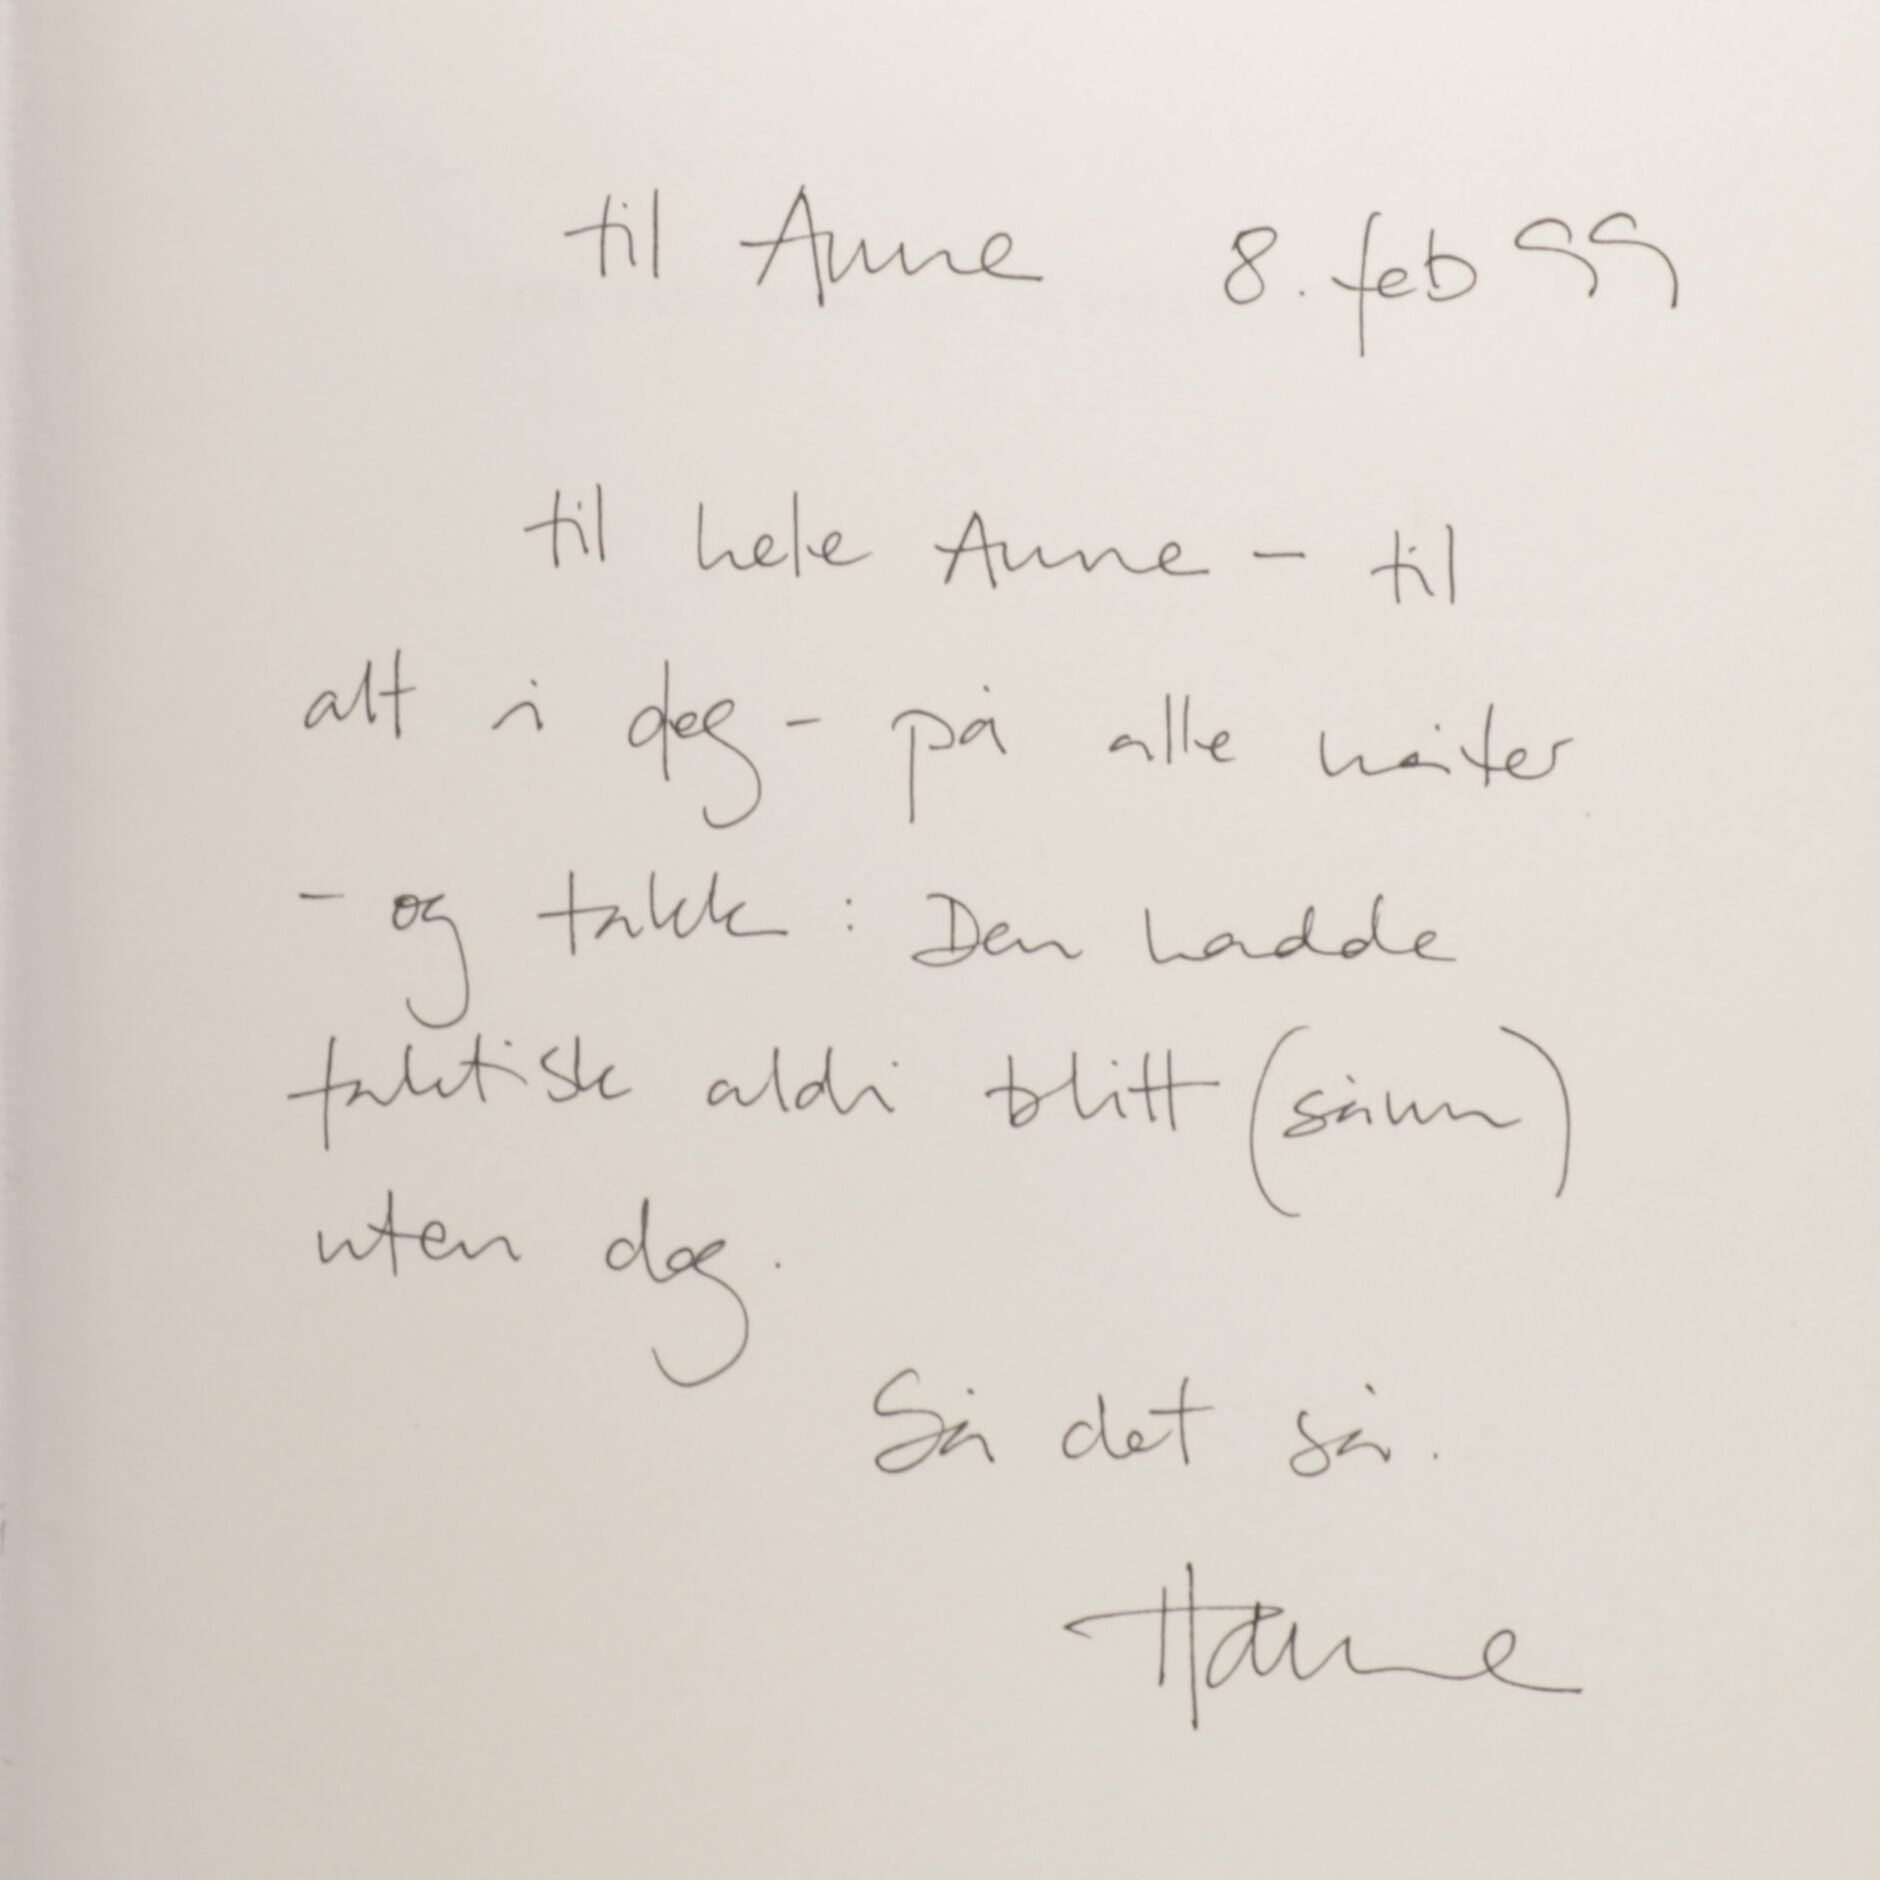 til Anne 8. feb 99
til hele Anne - til
alt i deg - på alle måter
- og takk : Den hadde
faktisk aldri blitt (sånn)
uten deg.
Så det så.
Hanne